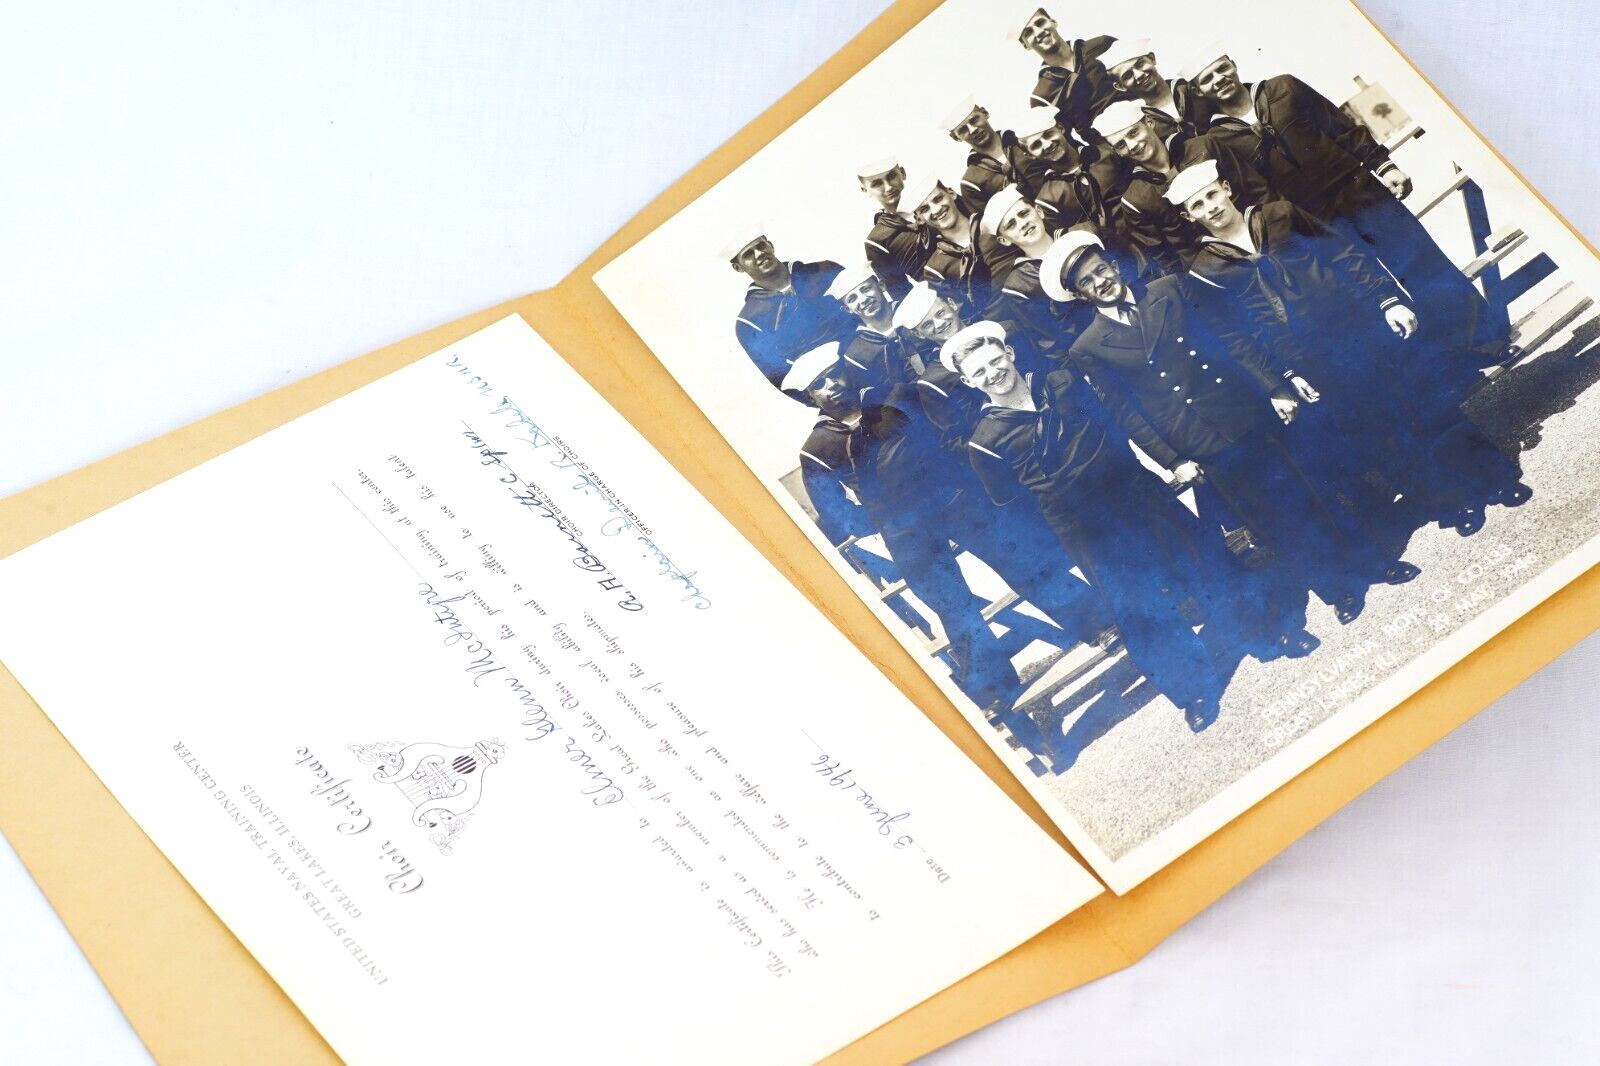 UNITED STATES NAVAL TRAINING CENTER
GREAT LAKES, ILLINOIS
Choir Certificate
This Certificate is awarded to Elmer Glenn McIntyre
who has served as a member of the Great Lakes Choir during his period of training at this center.
He is commended as one who possesses vocal ability and is willing to use his talent
to contribute to the welfare and pleasure of his shipmates.
Date 3 June 1946
A. H. Barnett C Sp (W)
CHOIR DIRECTOR
Chaplain R. USNR
OFFICER-IN-CHARGE OF CHOIRS
PENNSYLVANIA BOYS OF CO.
GREAT LAKES, ILL. - 29 MAY 1946